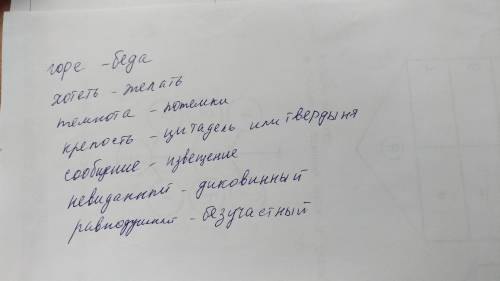 горе - беда
хотеть - желать
темнота - потемки
крепость - цитадель или твердыня
сообщение - извещение
невиданный - диковинный
равнодушный - безучастный